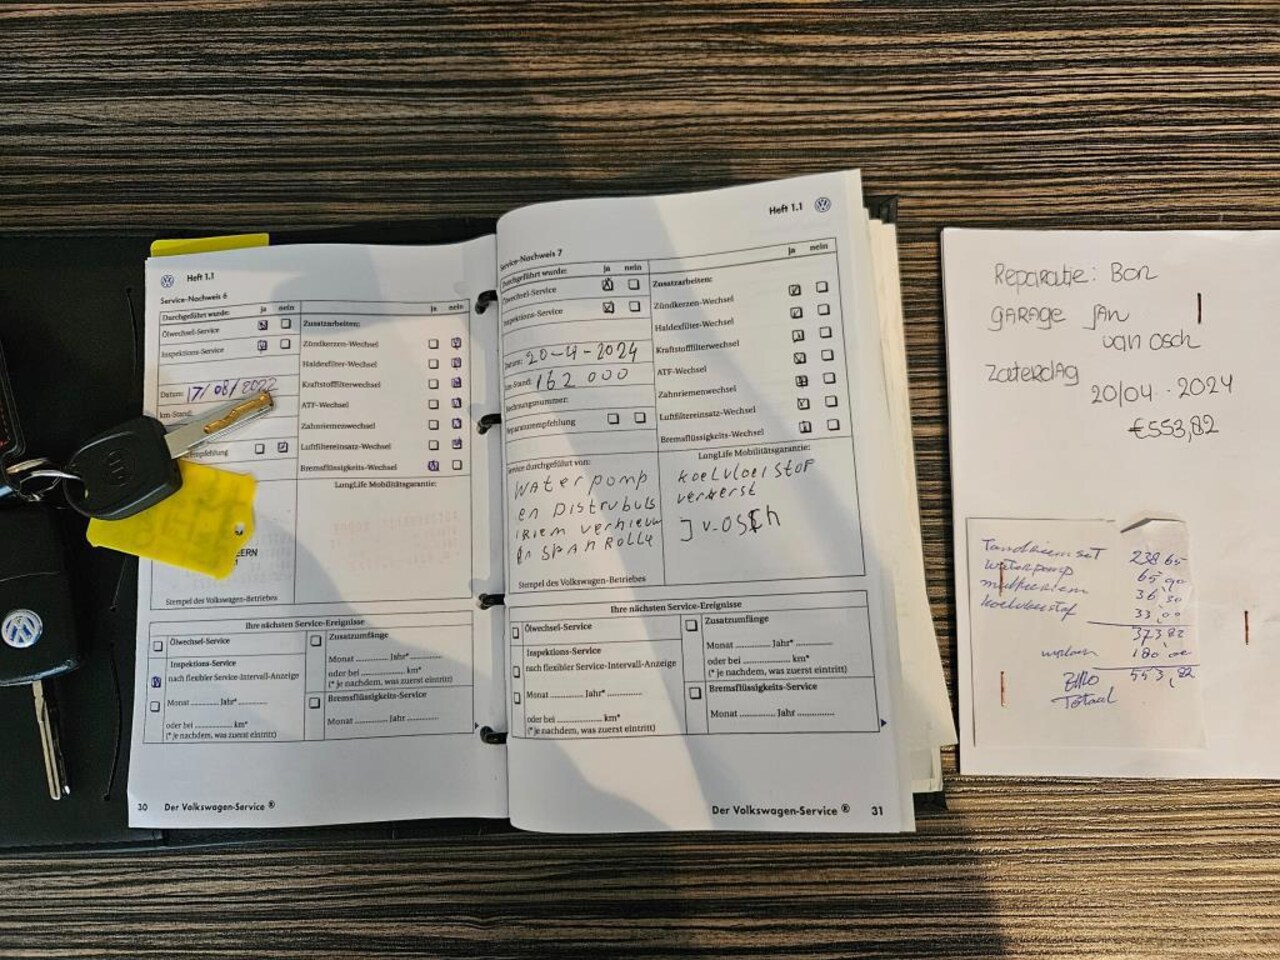 Heft 1.1
Service-Nachweis 6
Durchgeführt wurde: ja nein
Ölwechsel-Service
Inspektions-Service
Datum: 17/08/2022
km-Stand:
Zusatzarbeiten: ja nein
Zündkerzen-Wechsel
Haldexfilter-Wechsel
Kraftstofffilterwechsel
ATF-Wechsel
Zahnriemenwechsel
Luftfiltereinsatz-Wechsel
Bremsflüssigkeits-Wechsel
LongLife Mobilitätsgarantie:
Stempel des Volkswagen-Betriebes
Ihre nächsten Service-Ereignisse
Ölwechsel-Service
Inspektions-Service
nach flexibler Service-Intervall-Anzeige
Monat ............ Jahr* ......
oder bei ............ km*
(* je nachdem, was zuerst eintritt)
Zusatzumfänge
Monat ............ Jahr* ............
oder bei ............ km*
(* je nachdem, was zuerst eintritt)
Bremsflüssigkeits-Service
Monat ............ Jahr ............
30 Der Volkswagen-Service ®
Heft 1.1
Service-Nachweis 7
Durchgeführt wurde: ja nein
Ölwechsel-Service
Inspektions-Service
Datum: 20-4-2024
km-Stand: 162 000
Rechnungsnummer:
Reparaturempfehlung
Service durchgeführt von:
Waterpomp
en Distrubuls
riem verhieuw
En SPANROLLE
Stempel des Volkswagen-Betriebes
Zusatzarbeiten: ja nein
Zündkerzen-Wechsel
Haldexfilter-Wechsel
Kraftstofffilterwechsel
ATF-Wechsel
Zahnriemenwechsel
Luftfiltereinsatz-Wechsel
Bremsflüssigkeits-Wechsel
LongLife Mobilitätsgarantie:
Koelvloeistof
ververst
J v. OSCH
Ihre nächsten Service-Ereignisse
Ölwechsel-Service
Inspektions-Service
nach flexibler Service-Intervall-Anzeige
Monat ............ Jahr* ............
oder bei ............ km*
(* je nachdem, was zuerst eintritt)
Zusatzumfänge
Monat ............ Jahr* ............
oder bei ............ km*
(* je nachdem, was zuerst eintritt)
Bremsflüssigkeits-Service
Monat ............ Jahr ............
Der Volkswagen-Service ® 31
Reparatie: Bon
GARAGE JAN
van Osch
Zaterdag
20/04 · 2024
€553,82
Tandriemset 238 65
Waterpomp 65,90
multiriem 36,30
koelvloeistof 33,00
373 82
180,00
Euro 553,82
Totaal